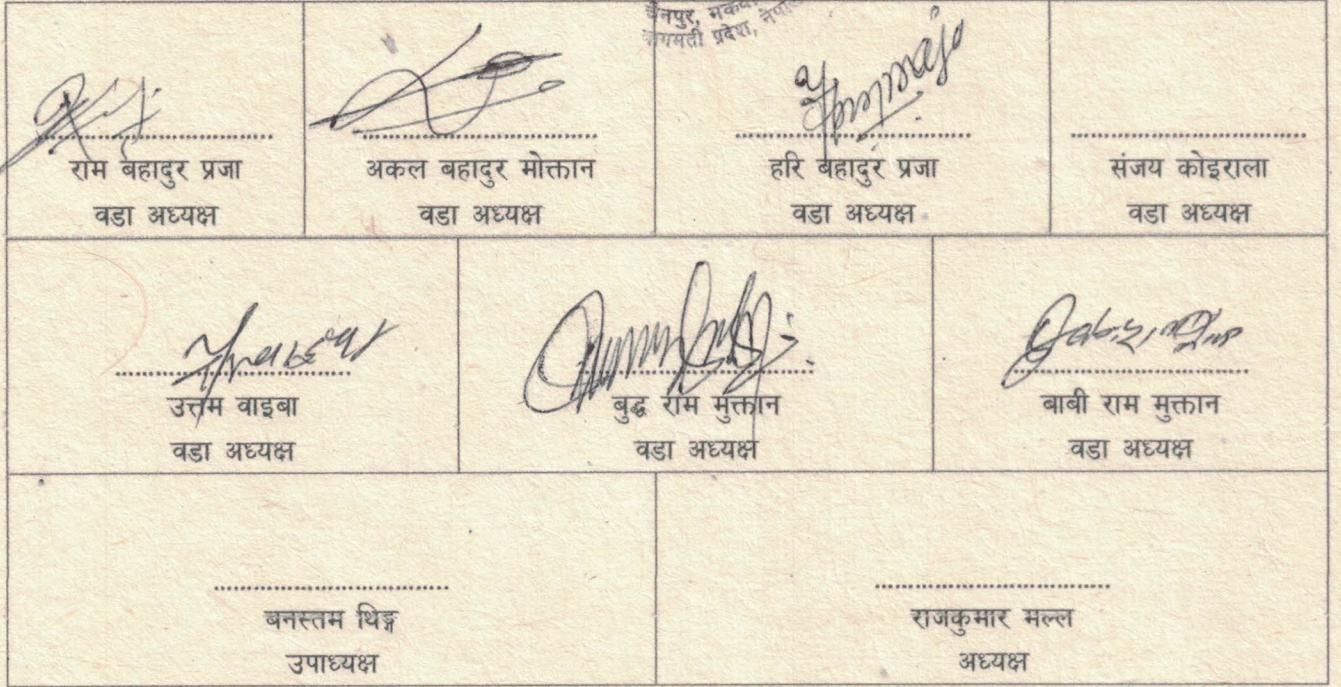 बागमती प्रदेश, नेपाल
राम बहादुर प्रजा
वडा अध्यक्ष
अकल बहादुर मोक्तान
वडा अध्यक्ष
हरि बहादुर प्रजा
वडा अध्यक्ष
संजय कोइराला
वडा अध्यक्ष
उत्तम वाइबा
वडा अध्यक्ष
बुद्ध राम मुक्तान
वडा अध्यक्ष
बाबी राम मुक्तान
वडा अध्यक्ष
बनस्तम थिङ्ग
उपाध्यक्ष
राजकुमार मल्ल
अध्यक्ष